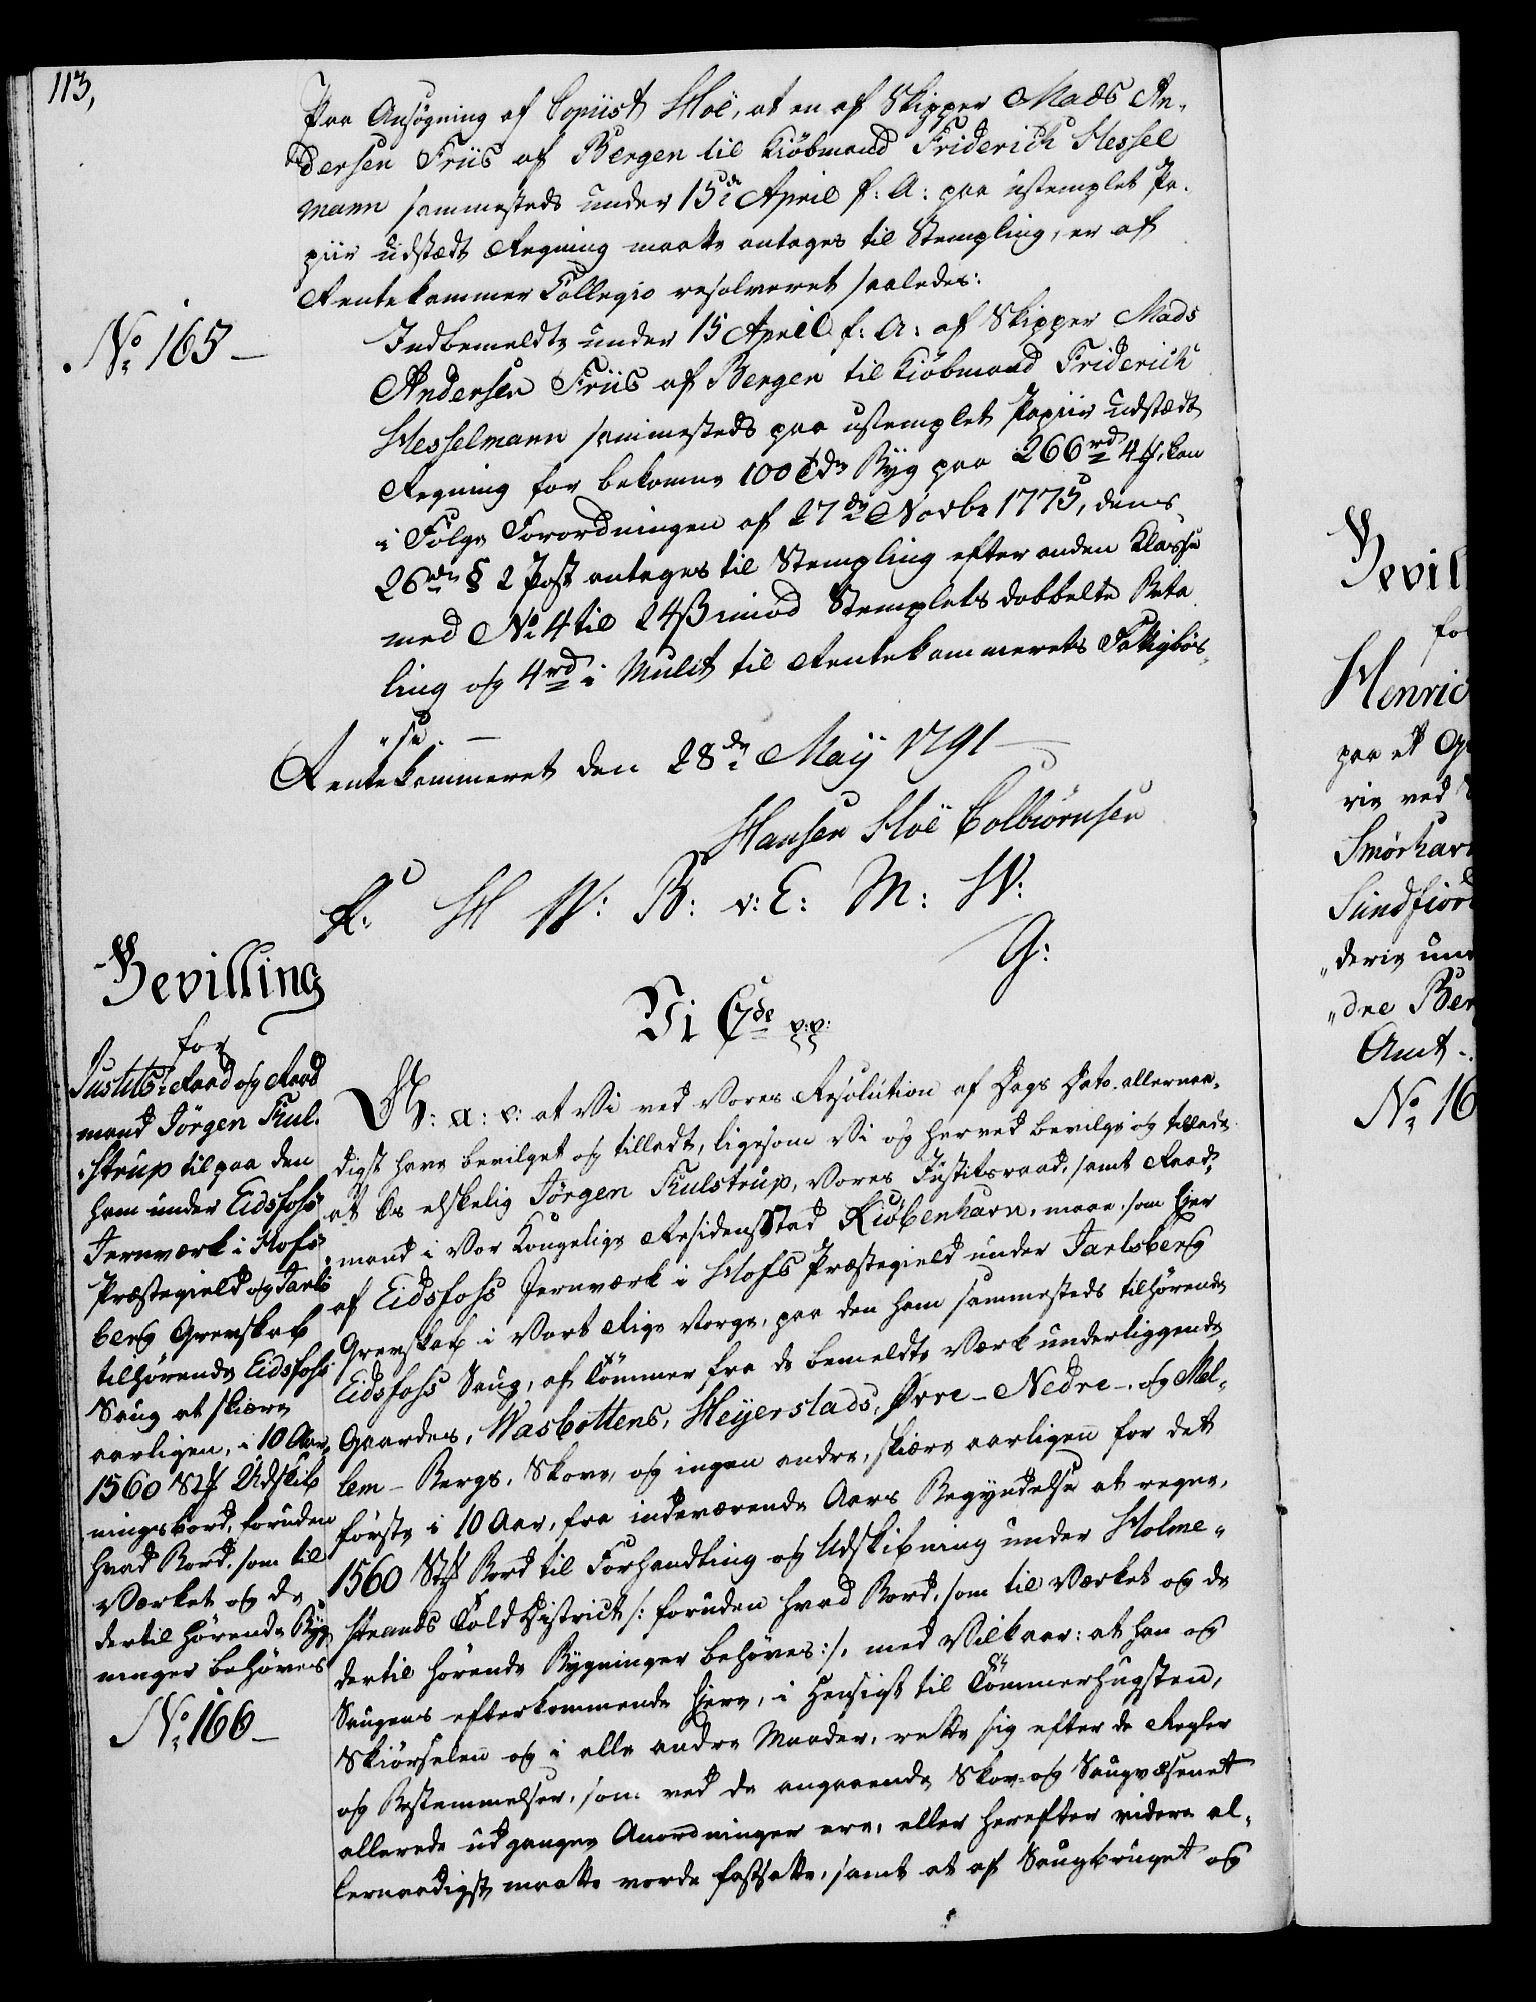 113,
Paa Ansøgning af Copiist Hoë, at en af Skipper Mads An-
dersen Friis af Bergen til Kiöbmand Friderich Hessel
mann sammesteds under 15de April f: A: paa ustemplet Pa-
piir udstædt Regning maatte antages til Stempling, er af
Rentekammer Collegio resolveret saaledes:
No 165
Indbemeldte under 15 April f: A: af Skipper Mads
Andersen Friis af Bergen til Kiöbmand Friderich
Hesselmann sammesteds paa ustemplet Papiir udstædt
Regning for bekomne 100 Tdr Byg paa 266 rd 4 ß, kan
i Følge Forordningen af 27de Novbr 1775, dens
26de § 2 Post antages til Stempling efter anden Klasse
med No 4 til 24 ß imod Stemplets dobbelte Beta
ling og 4 rd i Mulct til Rentekammerets Fattigbös-
"se. —
Rentekammeret den 28de Maij 1791 —
Hansen Hoë Colbiörnsen
R: H W: B: v: E: M: W:
G:
Bevilling
for
Justits-Raad og Raad
mand Jörgen Kul-
strup til paa den
ham under Eidsfoss
Jernværk i Hofs
Præstegield og Jarls
berg Grevskab
tilhörende Eidsfoss
Saug at skiære
aarligen, i 10 Aar,
1560 St Udskib
ningsbord, foruden
hvad Bord, som til
Værket og de
dertil hörende Byg
ninger behöves
No 166 —
Vi C7de p:p:
G: A: V: at Vi ved Vores Resolution af Dags Dato allernaa-
digst have bevilget og tilladt, ligesom Vi og herved bevilge og tillade
at Os elskelig Jörgen Kulstrup, Vores Justitsraad, samt Raad-
mand i Vor Kongelige Residens Stad Kiöbenhavn, maae, som Ejer
af Eidsfoss Jernværk i Hofs Præstegield under Jarlsberg
Grevskab i Vort Rige Norge, paa den ham sammesteds tilhörende
Eidsfoss Saug, af Tömmer fra de bemeldte Værk underliggende
Gaardes, Wasbottens, Heyerstads, Övre- Nedre- og Mel-
lem- Bergs, Skove, og ingen andre, skiære aarligen for det
förste i 10 Aar, fra indeværende Aars Begyndelse at regne,
1560 St Bord til Forhandling og Udskibning under Holme-
strands Told District /: foruden hvad Bord, som til Værket og de
dertil hörende Bygninger behöves :/, med Vilkaar: at han og
Saugens efterkommende Ejere, i Hensigt til Tömmerhugsten,
Skiörselen og i alle andre Maader, rette sig efter de Regler
og Bestemmelser, som ved de angaaende Skov- og Saugvæsenet
allerede udgangne Anordninger ere, eller herefter videre al-
lernaadigst maatte vorde fastsatte, samt at af Saugbruget og
Bevil
for
Henric
paa et
rie ved
Smörhav
Sundfiord
"derie und
"dre Ber
Amt.
No 16